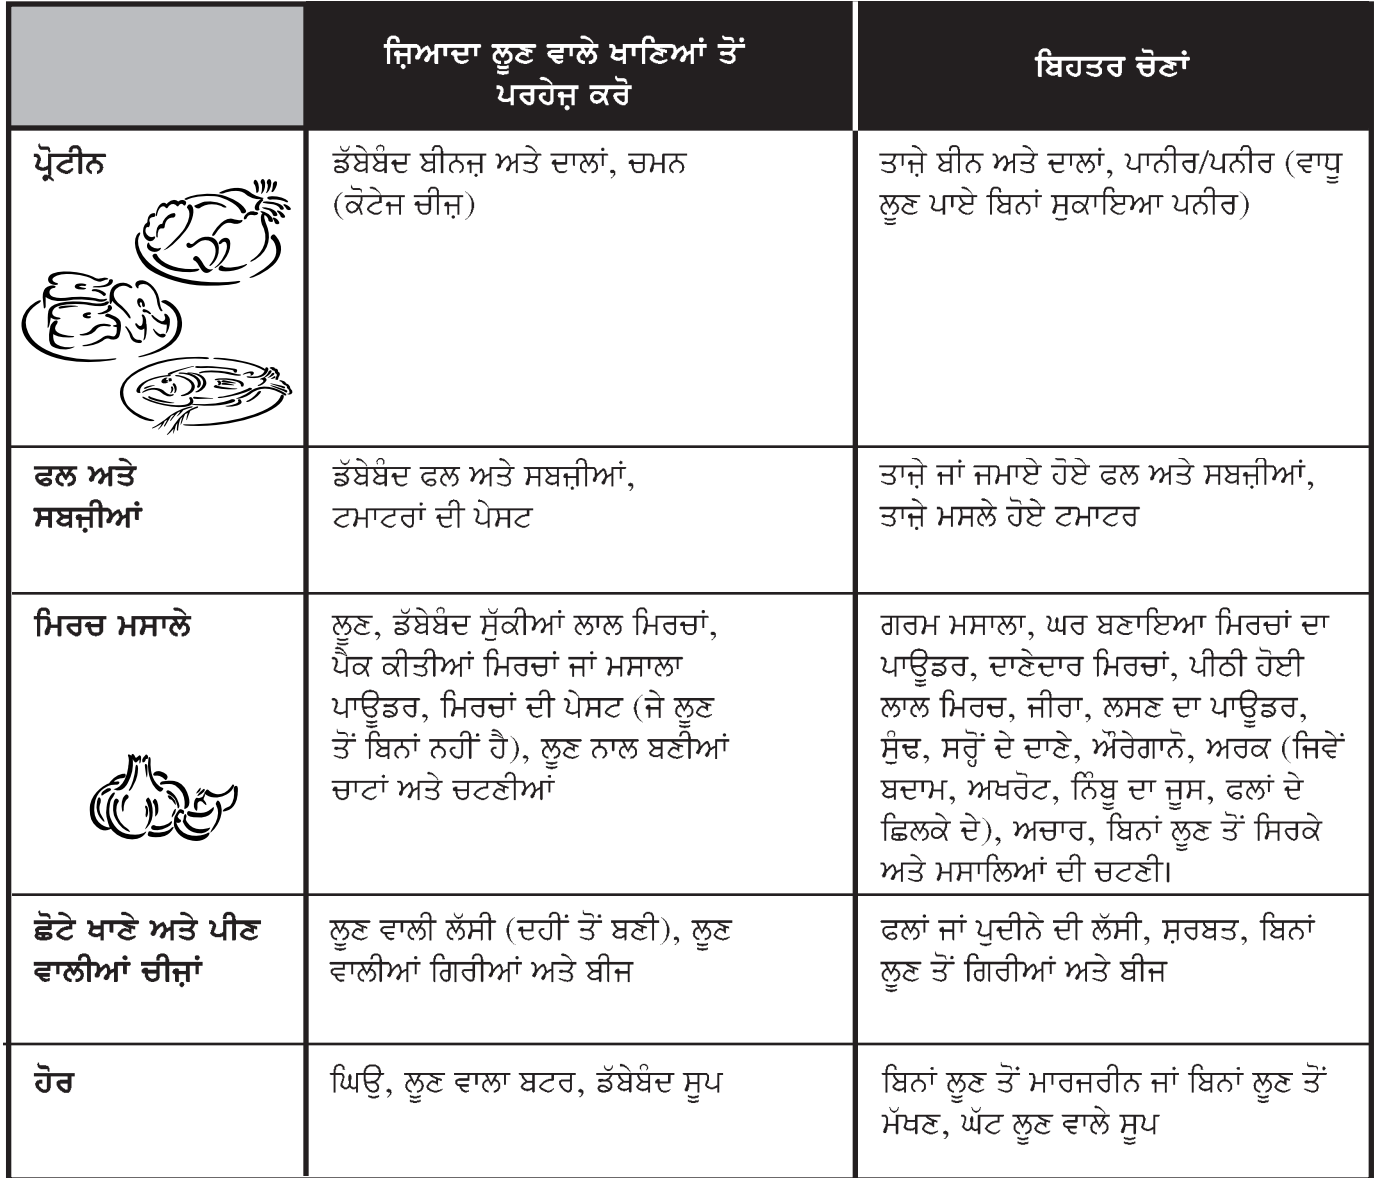 ਜ਼ਿਆਦਾ ਲੂਣ ਵਾਲੇ ਖਾਣਿਆਂ ਤੋਂ
ਪਰਹੇਜ਼ ਕਰੋ
ਬਿਹਤਰ ਚੋਣਾਂ
ਪ੍ਰੋਟੀਨ
ਡੱਬੇਬੰਦ ਬੀਨਜ਼ ਅਤੇ ਦਾਲਾਂ, ਚਮਨ
(ਕੋਟੇਜ ਚੀਜ਼)
ਤਾਜ਼ੇ ਬੀਨ ਅਤੇ ਦਾਲਾਂ, ਪਾਨੀਰ/ਪਨੀਰ (ਵਾਧੂ
ਲੂਣ ਪਾਏ ਬਿਨਾਂ ਸੁਕਾਇਆ ਪਨੀਰ)
ਫਲ ਅਤੇ
ਸਬਜ਼ੀਆਂ
ਡੱਬੇਬੰਦ ਫਲ ਅਤੇ ਸਬਜ਼ੀਆਂ,
ਟਮਾਟਰਾਂ ਦੀ ਪੇਸਟ
ਤਾਜ਼ੇ ਜਾਂ ਜਮਾਏ ਹੋਏ ਫਲ ਅਤੇ ਸਬਜ਼ੀਆਂ,
ਤਾਜ਼ੇ ਮਸਲੇ ਹੋਏ ਟਮਾਟਰ
ਮਿਰਚ ਮਸਾਲੇ
ਲੂਣ, ਡੱਬੇਬੰਦ ਸੁੱਕੀਆਂ ਲਾਲ ਮਿਰਚਾਂ,
ਪੈਕ ਕੀਤੀਆਂ ਮਿਰਚਾਂ ਜਾਂ ਮਸਾਲਾ
ਪਾਊਡਰ, ਮਿਰਚਾਂ ਦੀ ਪੇਸਟ (ਜੇ ਲੂਣ
ਤੋਂ ਬਿਨਾਂ ਨਹੀਂ ਹੈ), ਲੂਣ ਨਾਲ ਬਣੀਆਂ
ਚਾਟਾਂ ਅਤੇ ਚਟਣੀਆਂ
ਗਰਮ ਮਸਾਲਾ, ਘਰ ਬਣਾਇਆ ਮਿਰਚਾਂ ਦਾ
ਪਾਊਡਰ, ਦਾਣੇਦਾਰ ਮਿਰਚਾਂ, ਪੀਠੀ ਹੋਈ
ਲਾਲ ਮਿਰਚ, ਜੀਰਾ, ਲਸਣ ਦਾ ਪਾਊਡਰ,
ਸੁੰਢ, ਸਰ੍ਹੋਂ ਦੇ ਦਾਣੇ, ਔਰੇਗਾਨੋ, ਅਰਕ (ਜਿਵੇਂ
ਬਦਾਮ, ਅਖਰੋਟ, ਨਿੰਬੂ ਦਾ ਜੂਸ, ਫਲਾਂ ਦੇ
ਛਿਲਕੇ ਦੇ), ਅਚਾਰ, ਬਿਨਾਂ ਲੂਣ ਤੋਂ ਸਿਰਕੇ
ਅਤੇ ਮਸਾਲਿਆਂ ਦੀ ਚਟਣੀ।
ਛੋਟੇ ਖਾਣੇ ਅਤੇ ਪੀਣ
ਵਾਲੀਆਂ ਚੀਜ਼ਾਂ
ਲੂਣ ਵਾਲੀ ਲੱਸੀ (ਦਹੀਂ ਤੋਂ ਬਣੀ), ਲੂਣ
ਵਾਲੀਆਂ ਗਿਰੀਆਂ ਅਤੇ ਬੀਜ
ਫਲਾਂ ਜਾਂ ਪੁਦੀਨੇ ਦੀ ਲੱਸੀ, ਸ਼ਰਬਤ, ਬਿਨਾਂ
ਲੂਣ ਤੋਂ ਗਿਰੀਆਂ ਅਤੇ ਬੀਜ
ਹੋਰ
ਘਿਉ, ਲੂਣ ਵਾਲਾ ਬਟਰ, ਡੱਬੇਬੰਦ ਸੂਪ
ਬਿਨਾਂ ਲੂਣ ਤੋਂ ਮਾਰਜਰੀਨ ਜਾਂ ਬਿਨਾਂ ਲੂਣ ਤੋਂ
ਮੱਖਣ, ਘੱਟ ਲੂਣ ਵਾਲੇ ਸੂਪ